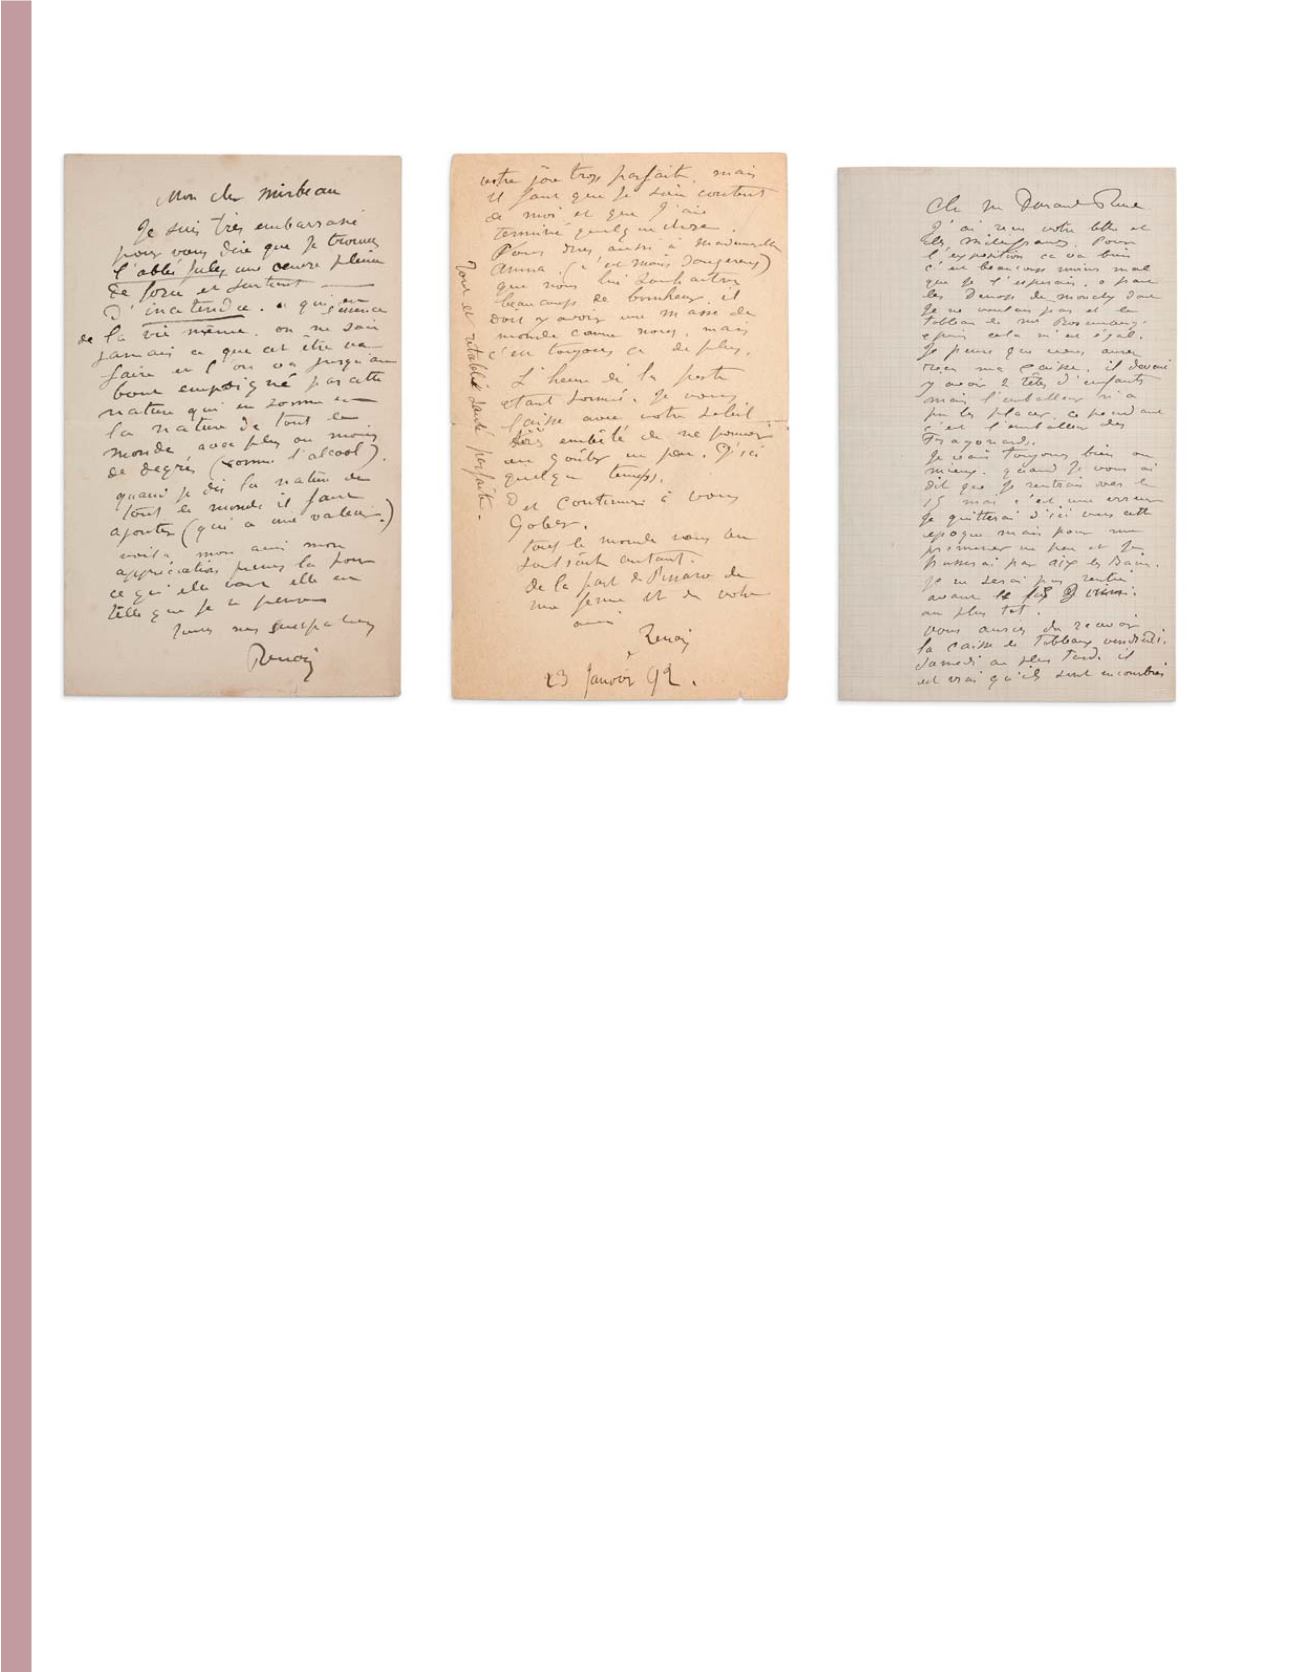 Mon cher Mirbeau
Je suis très embarrassé
pour vous dire que je trouve
l'abbé Jules une œuvre pleine
de force et surtout
d'incertitude. ce qui est l'essence
de la vie même. on ne sait
jamais ce que cet être va
faire et l'on va jusqu'au
bout empoigné par cette
nature qui en somme est
la nature de tout le
monde avec plus ou moins
de degrés (comme l'alcool).
quand je dis la nature de
tout le monde il faut
ajouter (qui a une valeur.)
voilà mon ami mon
appréciation prenez la pour
ce qu'elle vaut elle est
telle que je le pense
Renoir
votre joie trop parfaite, mais
il faut que je sois content
de moi et que j'aie
terminé quelque chose.
Vous direz aussi à Mademoiselle
Anna (c'est moins dangereux)
que nous lui souhaitons
beaucoup de bonheur, il
doit y avoir une masse de
monde comme nous, mais
c'est toujours ça de plus.
L'heure de la poste
étant sonnée. je vous
laisse avec votre soleil
très embêté de ne pouvoir
en goûter un peu. d'ici
quelque temps.
Et continuez à vous
Gober.
tout le monde vous en
souhaite autant.
de la part de
ma femme et de votre
ami
Renoir
23 Janvier 92.
Tout est rétabli santé parfaite.
Ch Mr Durand Ruel
J'ai reçu votre lettre et
les mille francs. Pour
l'exposition ça va bien
c'est beaucoup moins mal
que je l'espérais, à part
les Danses de Mouchy dont
je ne voulais pas et le
tableau de Mr Rosenberg.
et puis cela m'est égal.
Je pense que vous aurez
reçu ma caisse, il devait
y avoir 2 têtes d'enfants
mais l'emballeur n'a
pu les placer, cependant
c'est l'emballeur des
Fragonards.
Je vais toujours bien ou
mieux. quand je vous ai
dit que je rentrais vers le
15 mai c'est une erreur
je quitterai d'ici vers cette
époque mais pour me
promener un peu et je
passerai par Aix les Bains.
je ne serai pas rentré
avant le
au plus tôt.
vous aurez dû recevoir
la caisse de tableaux vendredi.
samedi au plus tard. il
est vrai qu'ils sont encombrés